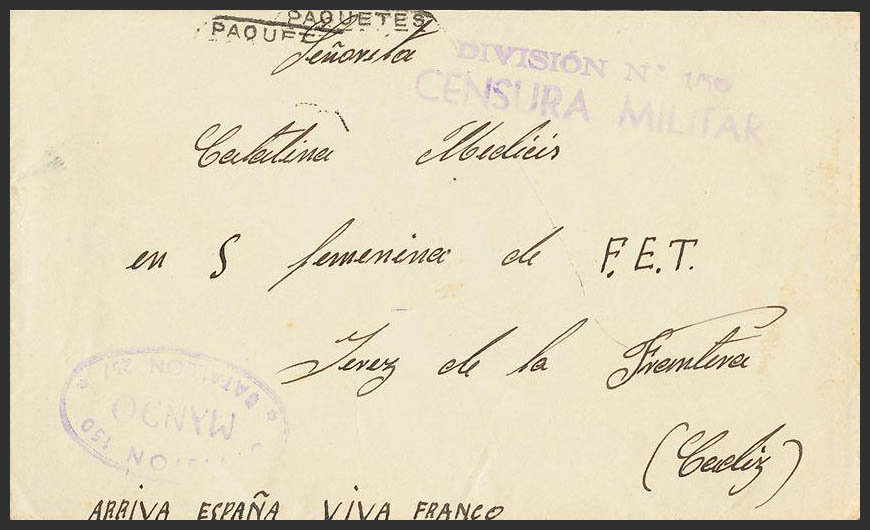 PAQUETES
PAQUE
Señorita
DIVISIÓN N° 150
CENSURA MILITAR
Catalina Medicis
en S femenina de F.E.T.
Jerez de la Frontera
(Cadiz)
DIVISION 150 * BATALLON 257 *
MANDO
ARRIVA ESPAÑA VIVA FRANCO